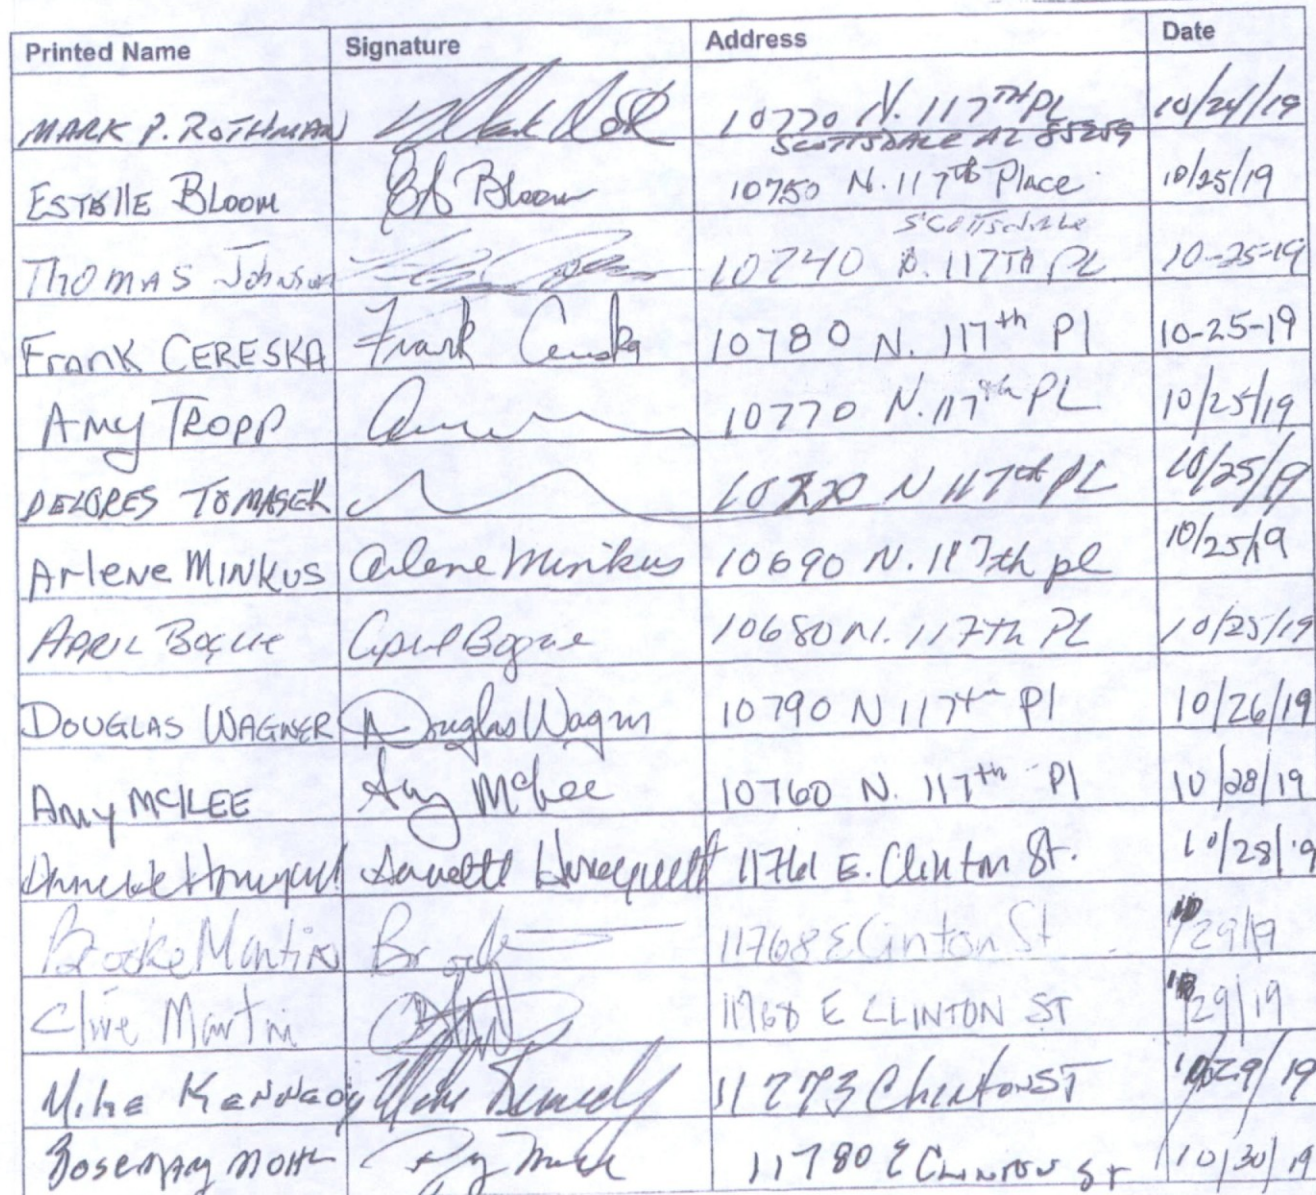 Printed Name Signature Address Date
MARK P. ROTHMAN 10770 N. 117TH PL 10/24/19
SCOTTSDALE AZ 85259
ESTELLE BLOOM Bloom 10750 N. 117th Place 10/25/19
Scottsdale
THOMAS Johnson 10740 N. 117TH PL 10-25-19
FRANK CERESKA Frank Cereska 10780 N. 117th Pl 10-25-19
Amy TROPP 10770 N. 117th PL 10/25/19
DELORES TOMASEK N 117th PL 10/25/19
Arlene MINKUS Arlene Minkus 10690 N. 117th pl 10/25/19
APRIL BOGUE April Bogue 10680 N. 117th PL 10/25/19
DOUGLAS WAGNER Douglas Wagner 10790 N 117th Pl 10/26/19
Amy MCKLEE Amy 10760 N. 117th Pl 10/28/19
Annette Annette 11761 E. Clinton St. 10/28/19
Brooke Martin 11768 E Clinton St 10/29/19
Clive Martin 11768 E CLINTON ST 10/29/19
Mike Kennedy Mike Kennedy 11773 Clinton ST 10/29/19
Rosemary 11780 E CLINTON ST 10/30/19